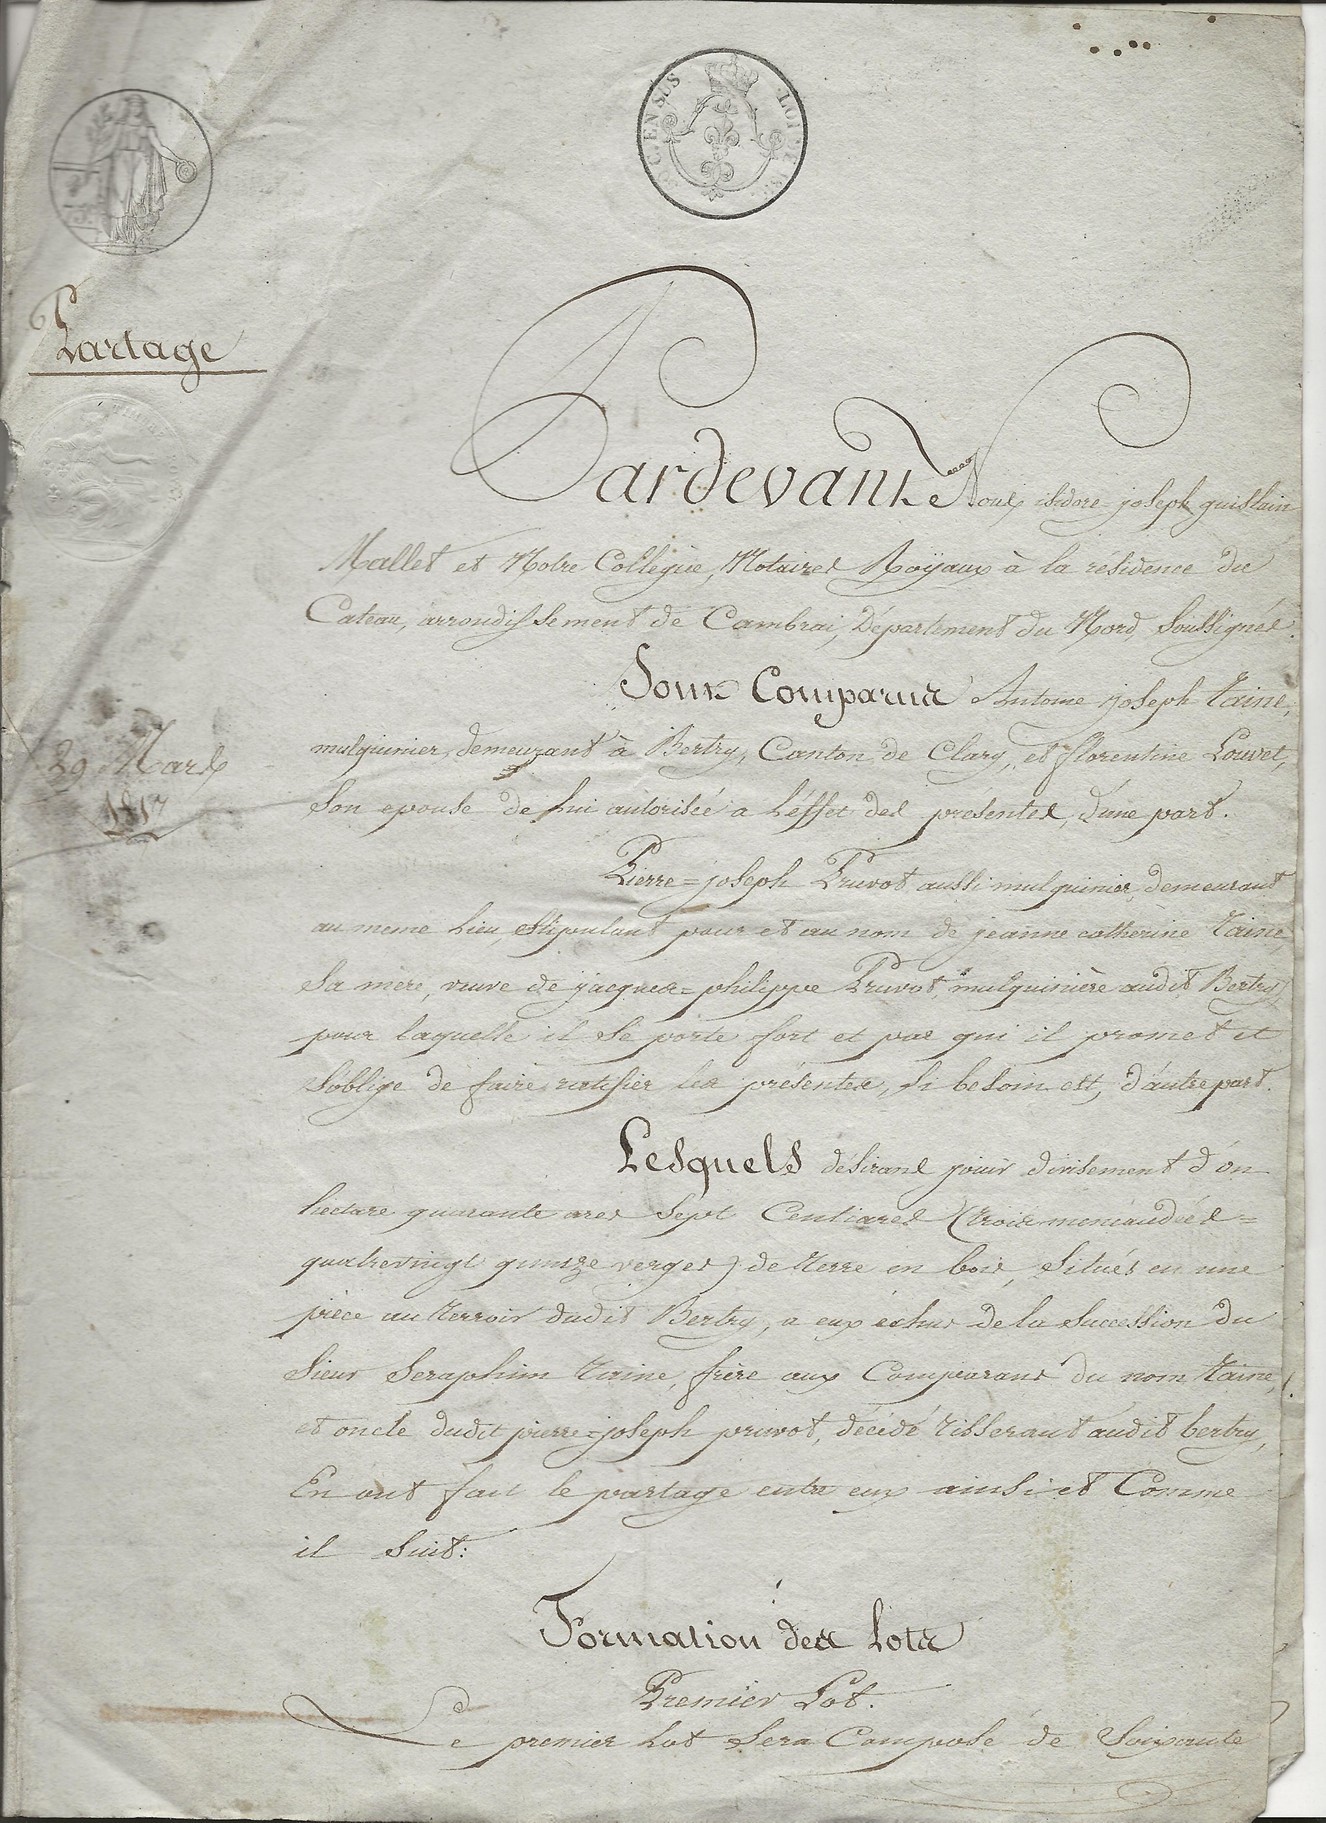 50 C. EN SUS
LOI DE 1816
Partage
29 Mars
1817
Pardevant Nous isidore joseph guislain
Mallet et Notre Collegue, Notaires Royaux à la résidence du
Cateau, arrondissement de Cambrai, Département du Nord, Soussignés.
Sont Comparus Antoine joseph taine,
mulquinier, demeurant à Bertry, Canton de Clary, et florentine Louvet,
Son epouse de lui autorisée a l'éffet des présentes, d'une part.
Pierre=joseph Pruvot aussi mulquinier, demeurant
au meme lieu, Stipulant pour et au nom de jeanne catherine taine
Sa mère, veuve de jacques=philippe Pruvot, mulquinière audit Bertry,
pour laquelle il Se porte fort et par qui il promet et
S'oblige de faire ratifier les présentes, Si besoin est, d'autre part.
Lesquels désirans jouir divisement d'un
hectare quarante ares Sept Centiares (trois mencaudées=
quatrevingt quinze verges) de terre en bois, Situés en une
pièce au terroir dudit Bertry, a eux échus de la Succession du
Sieur Seraphim taine, frère aux Comparans du nom taine,
et oncle dudit pierre=joseph pruvot, décédé tisserant audit bertry,
En ont fait le partage entre eux ainsi et Comme
il Suit:
Formation des Lots
Premier Lot.
Le premier Lot Sera Composé de Soixante